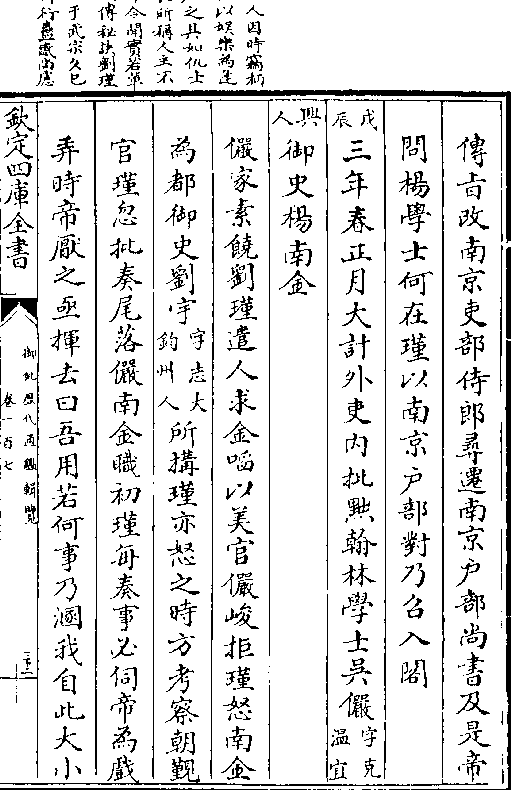 人因時竊柄
以娛樂為逢
之具如仇士
所稱人主不
令閒實若輩
傳秘訣劉瑾
于武宗久已
行蠱惑尚慮
傳旨改南京吏部侍郎尋遷南京户部尚書及是帝
問楊學士何在瑾以南京户部對乃召入閣
戊辰三年春正月大計外吏内批黜翰林學士吳儼字克温宜
興人御史楊南金
儼家素饒劉瑾遣人求金啗以美官儼峻拒瑾怒南金
為都御史劉宇字志大鈞州人所搆瑾亦怒之時方考察朝覲
官瑾忽批奏尾落儼南金職初瑾每奏事必伺帝為戲
弄時帝厭之亟揮去曰吾用若何事乃溷我自此大小
欽定四庫全書
御批歷代通鑑輯覽
卷一百七